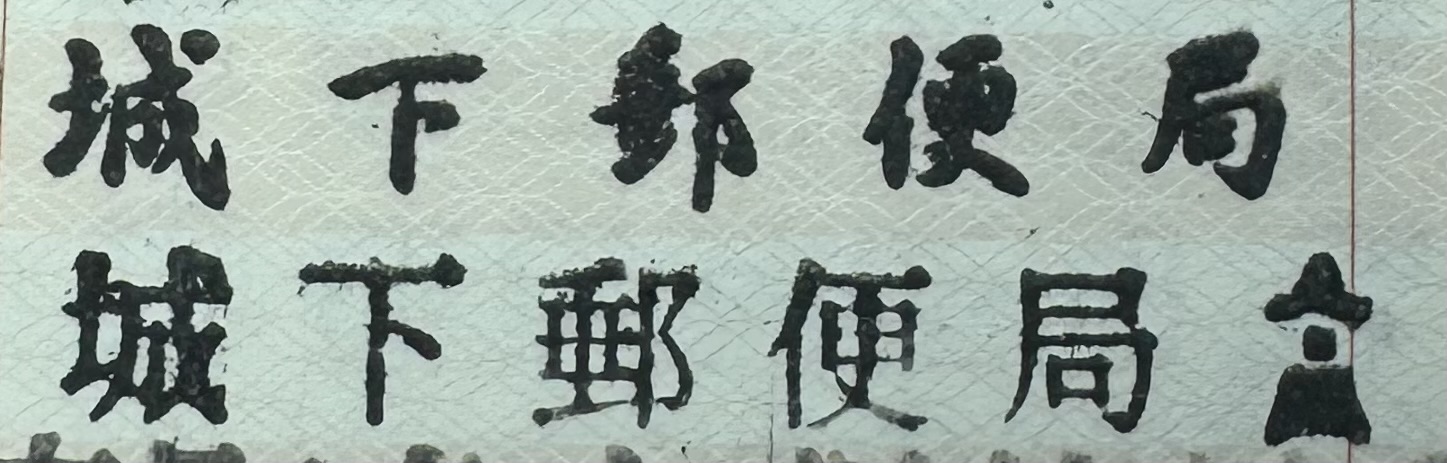 城下郵便局
城下郵便局